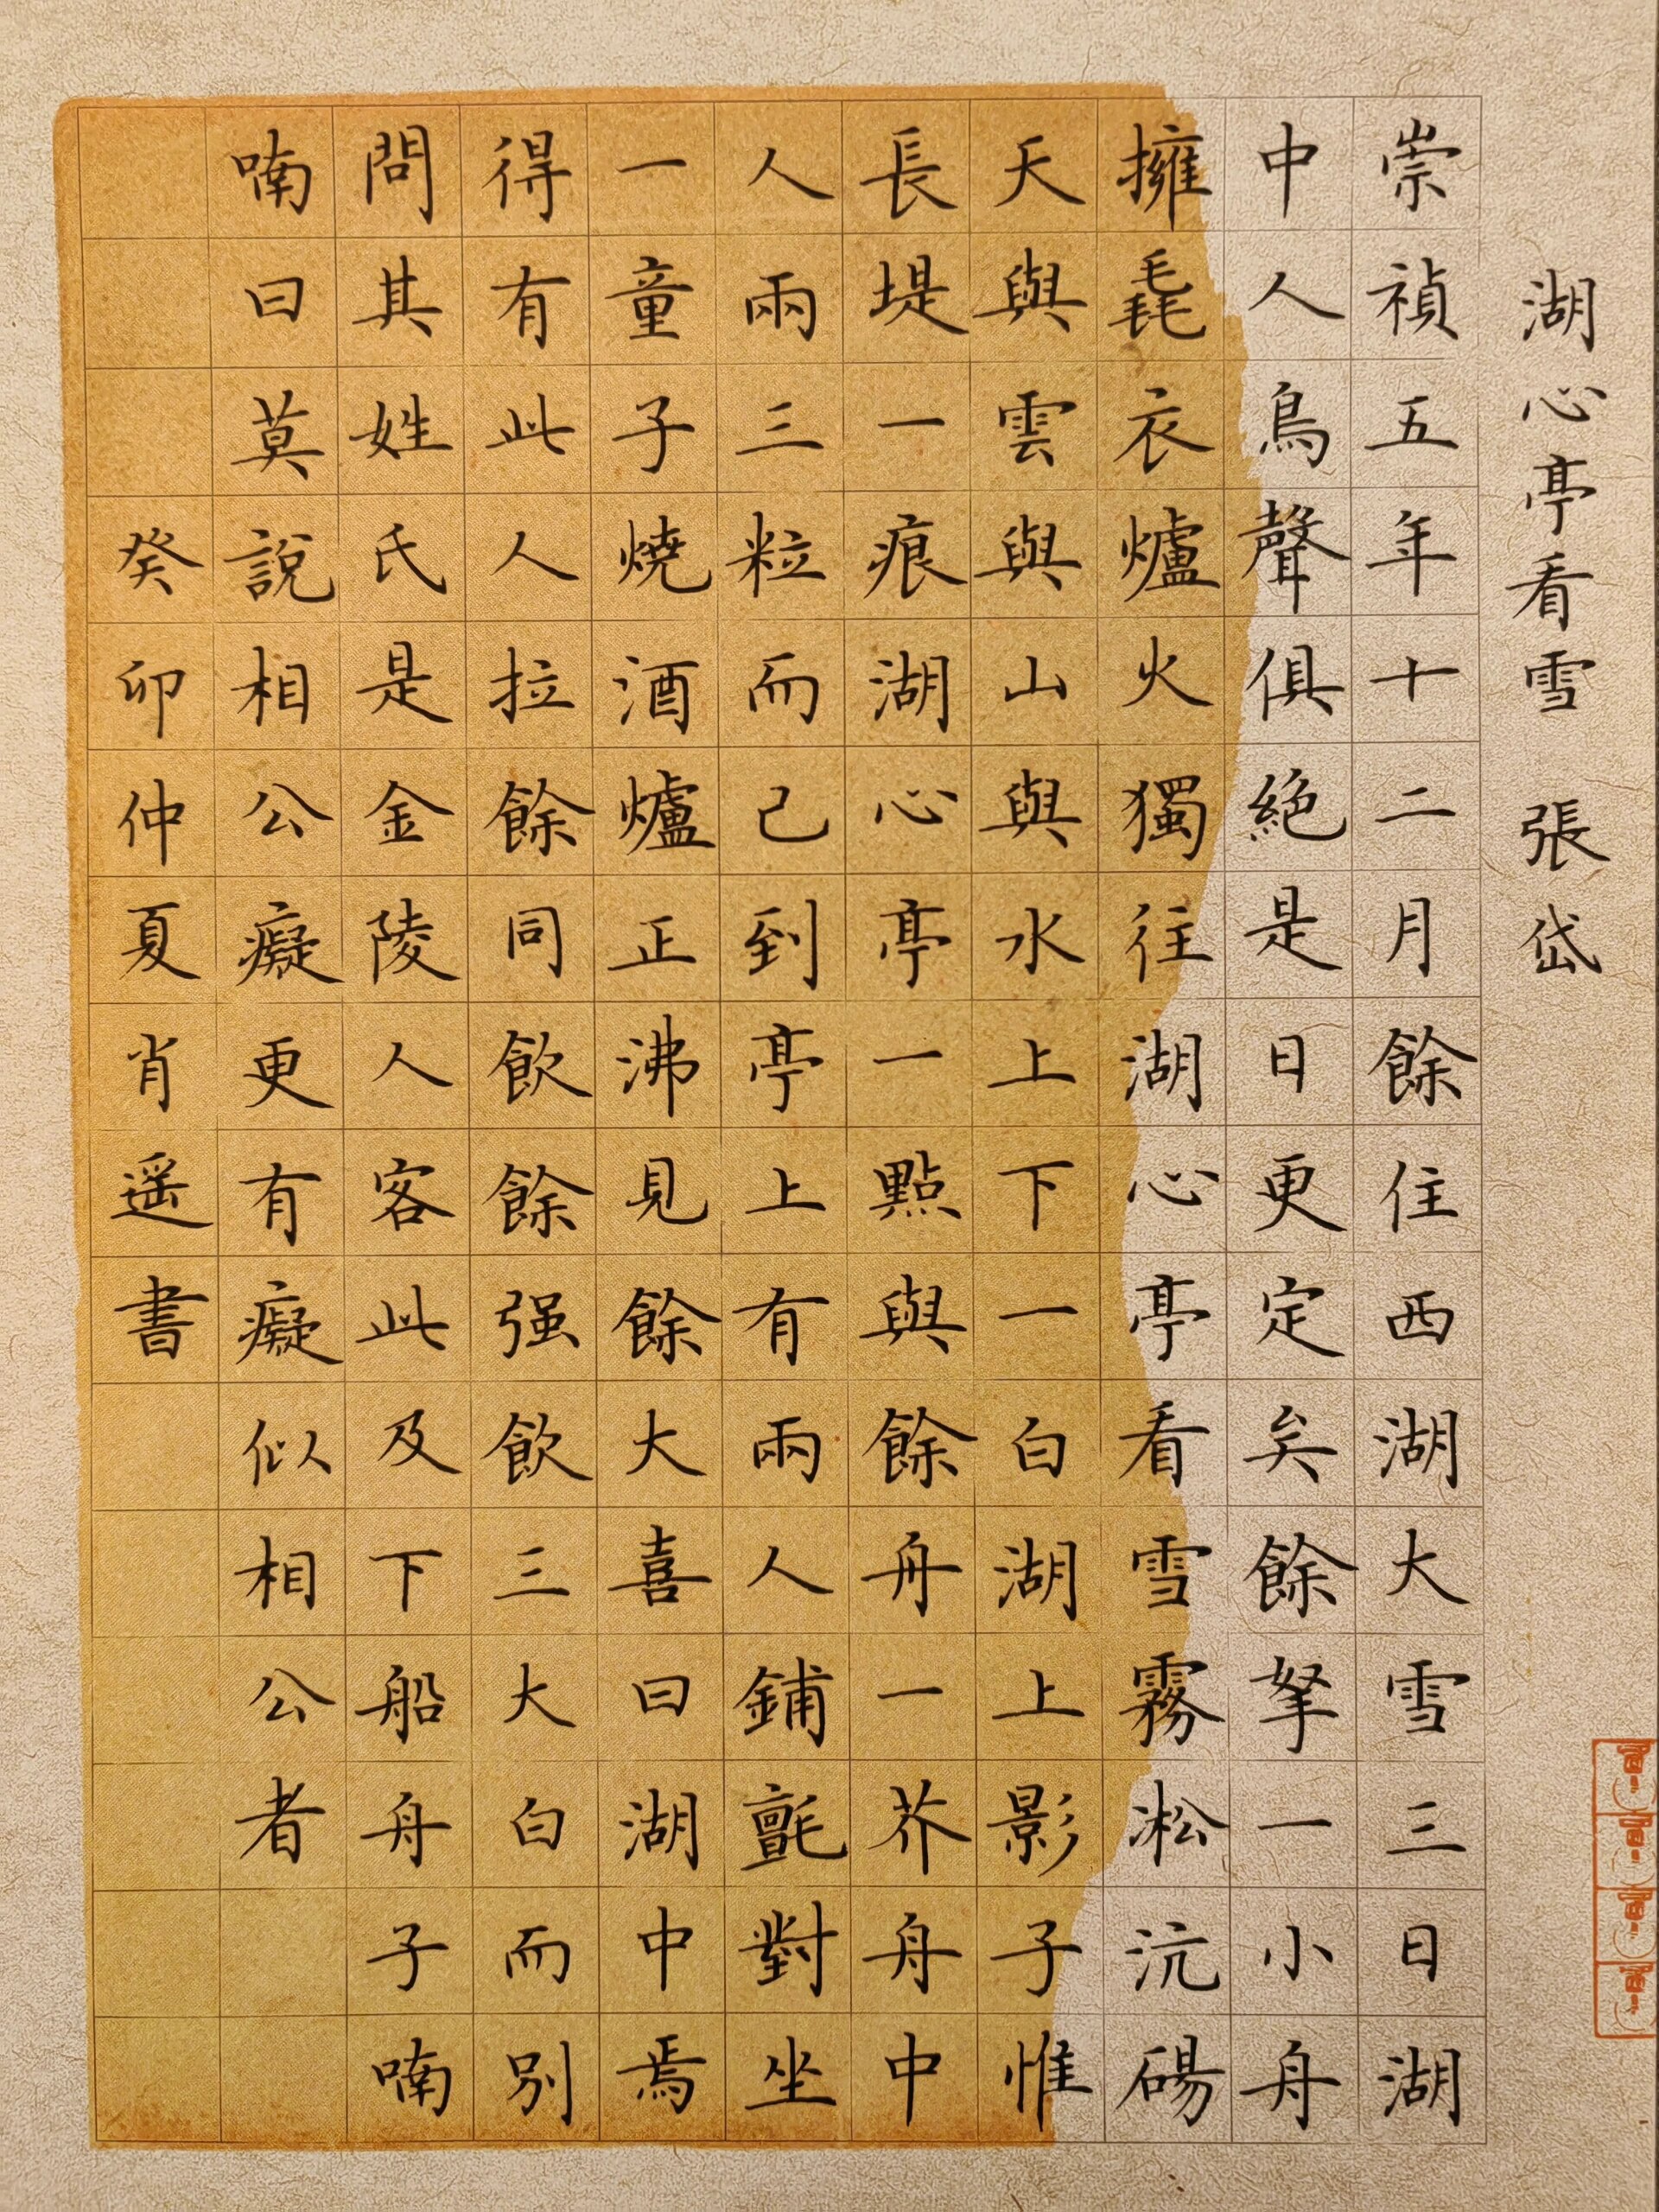 湖心亭看雪 張岱
崇禎五年十二月餘住西湖大雪三日湖
中人鳥聲俱絕是日更定矣餘拏一小舟
擁毳衣爐火獨往湖心亭看雪霧凇沆碭
天與雲與山與水上下一白湖上影子惟
長堤一痕湖心亭一點與餘舟一芥舟中
人兩三粒而已到亭上有兩人鋪氈對坐
一童子燒酒爐正沸見餘大喜曰湖中焉
得有此人拉餘同飲餘强飲三大白而別
問其姓氏是金陵人客此及下船舟子喃
喃曰莫說相公癡更有癡似相公者
癸卯仲夏肖遥書